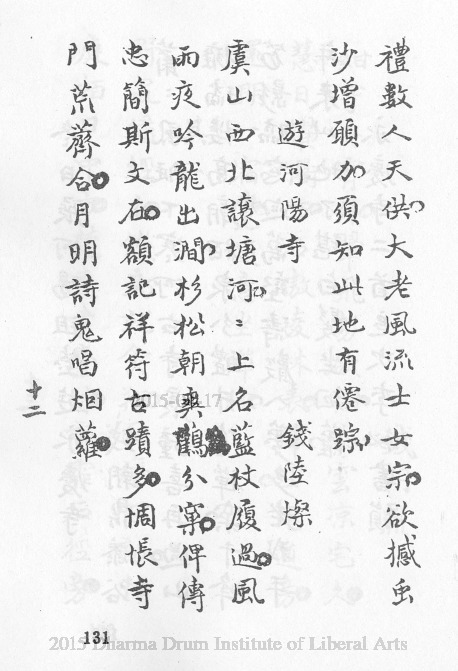 禮數人天供大老風流士女宗欲撼虫
沙增願力須知此地有僊踪
遊河陽寺 錢陸燦
虞山西北讓塘河〻上名藍杖履過風
雨夜吟龍出澗杉松朝爽鶴分窠俾傳
忠簡斯文在額記祥符古蹟多惆悵寺
門荒薺合月明詩鬼唱烟蘿
十二
131
2015 Dharma Drum Institute of Liberal Arts